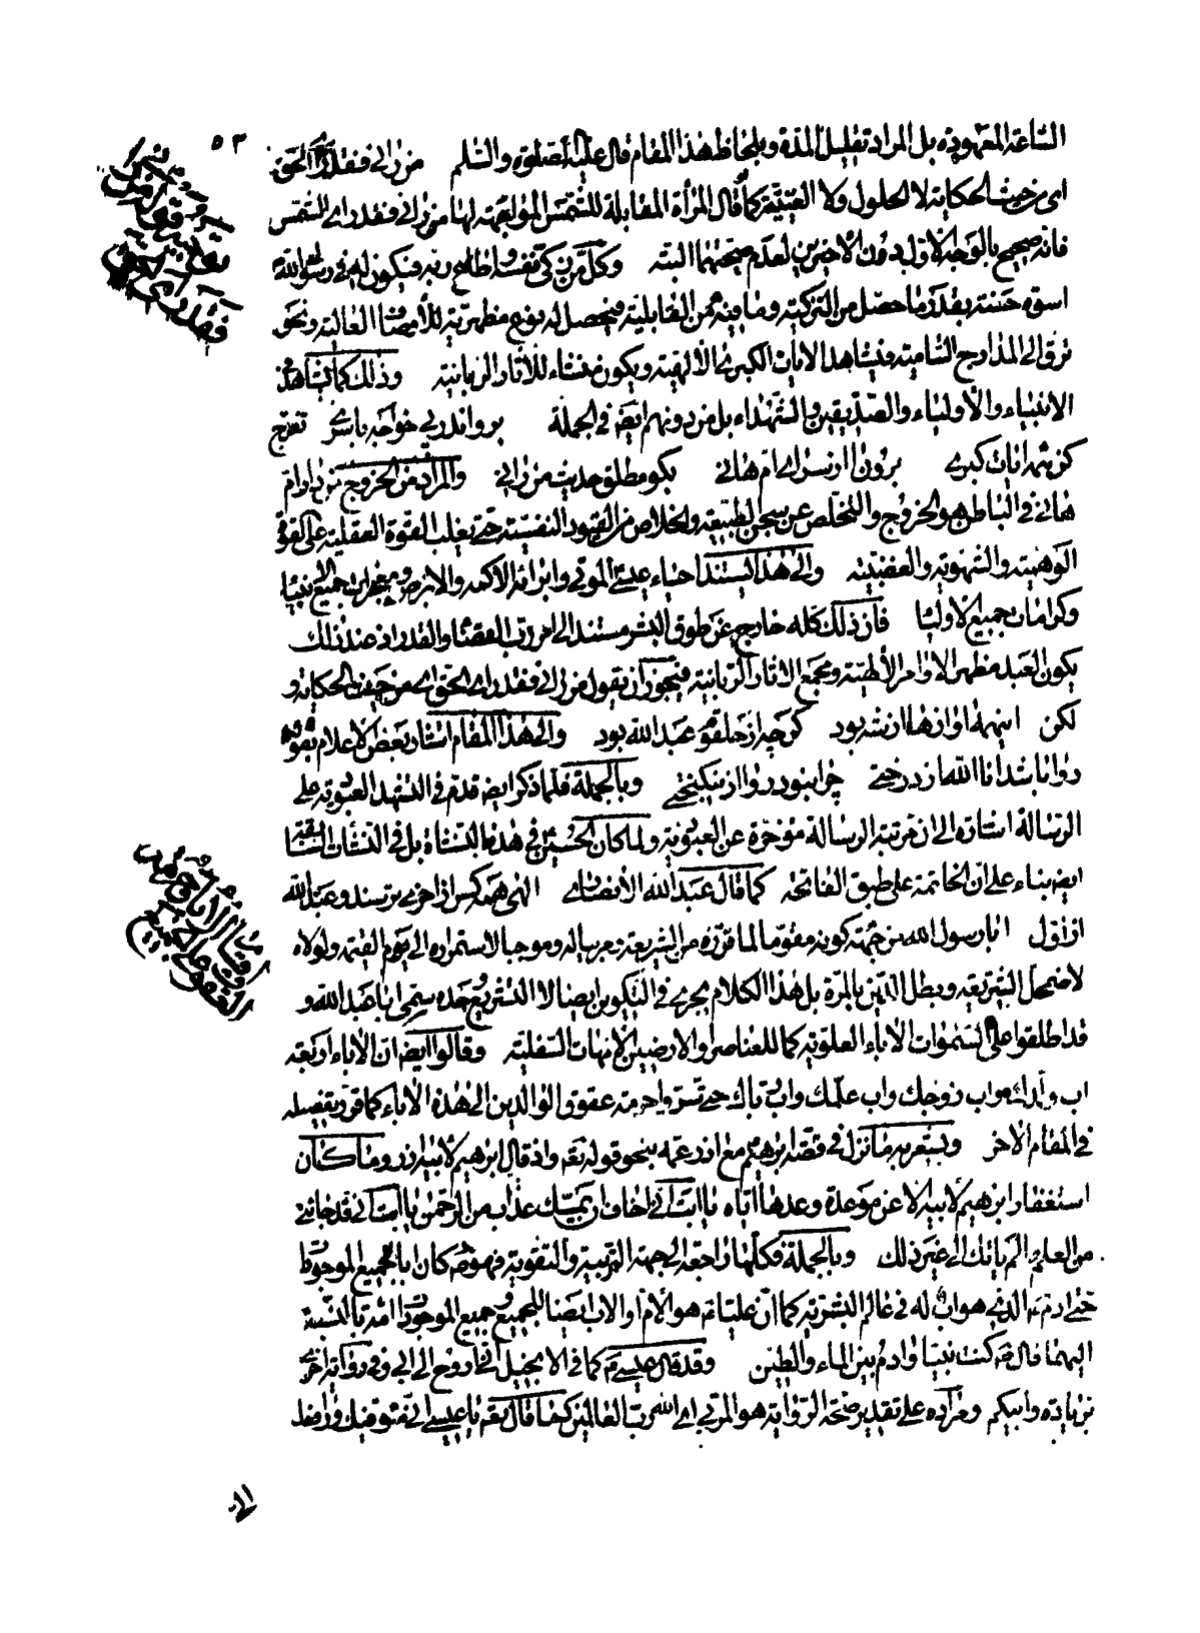 ٥٣
الساعة المعهودة بل المراد تقليل المدة وبلحاظ هذا المقام قال عليه الصلوة والسلم من رانی فقد رای الحق
ای من حيث الحكاية لا الحلول ولا العينية كما قال المرأة المقابلة للشمس المواجهة لها من رانی فقد رای الشمس
فانه صحيح بالوجه الاول بدون الاخيرين لعدم صحتهما البتة وكل من زكى نفسه واطاع ربه فيكون له فی رسول الله
اسوة حسنة بقدر ما حصل من التزكية وما فيه من القابلية فيحصل له نوع مظهرية للأوصاف العالية ونحو
ترق الى المدارج السامية فيشاهد الايات الكبرى الالهية ويكون منشاء للاثار الربانية وذلك كما تشاهد فی
الانبياء والأولياء والصديقين والشهداء بل من دونهم ايضا فی الجملة برو اندر پی خواجه باسری تفرج
كن همه ايات كبری برون ا از سرای ام هانی بگو مطلق حديث من رانی والمراد من الخروج من دار ام
هانی فی الباطن هو الخروج والتخلص عن سجن الطبيعة والخلاص من القيود النفسية حتى يغلب القوة العقلية على القوة
الوهمية والشهوية والغضبية والى هذا يستند احياء عيسى الموتى وابرائه الاكمه والابرص ومعجزات جميع الانبياء
وكرامات جميع الاوليا فان ذلك كله خارج عن طوق البشر مستند الى امر رب القضا والقدر اذ عند ذلك
يكون العبد مظهر الاوامر الالهية ومجمع الاثار الربانية فيجوز ان يقول من رانی فقد رای الحق ای من حيث الحكاية و
لكن اينهمه اوازها از شه بود گرچه از حلقوم عبد الله بود والى هذا المقام اشار بعض الاعلام بقوله
روا باشد انا الله از درختی چرا نبود روا از نيكبختی وبالجملة فلما ذكر ايضا قدم فی التشهد العبودية على
الرسالة اشارة الى ان مرتبة الرسالة مؤخرة عن العبودية ولما كان الحسين فی هذه النشاة بل فی النشات السابقة
ايضا بناء على ان الخاتمة على طبق الفاتحة كما قال عبد الله الأنصاری الهی همه كس از اخر می ترسند و عبد الله
از اول ابا رسول الله من جهة كونه مقوما لما قرره من الشريعة مربيا له وموجبا لاستمراره الى يوم القيمة ولولاه
لاضمحل الشريعة وبطل الدين بالمرة بل هذا الكلام يجری فی التكوين ايضا لا التشريع وحده سمی ابا عبد الله و
قد اطلقوا على السموات الاباء العلوية كما للعناصر والارضين الامهات السفلية وقالوا ايضا ان الاباء اربعة
اب ولدك واب زوجك واب علمك واب رباك حتى تسری حرمة عقوق الوالدين الى هذه الاباء كما قرر بتفصيله
فی المقام الاخر ويشعر به ما نزل فی قصة ابرهيم مع ازر عمه بنحو قوله تعه واذ قال ابرهيم لابيه ازر وما كان
استغفار ابرهيم لابيه الا عن موعدة وعدها اياه يا ابت انی اخاف ان يمسك عذاب من الرحمن يا ابت انی قد جائنی
من العلم ما لم ياتك الى غير ذلك وبالجملة فكلها راجعة الى جهة التربية والتقوية فهو كان ابا لجميع الموجودات
حتى ادم الذی هو اب له فی عالم البشرية كما ان عليا هو الام او الاب ايضا للجميع وجميع الموجودات امة بالنسبة
اليهما قال ص كنت نبيا وادم بين الماء والطين وقد قال عيسى كما فی الانجيل انی اروح الى ابی وفی رواية اخرى
بزيادة وابيكم ومراده على تقدير صحة الرواية هو المربی ای الله رب العالمين كما قال تعه يا عيسى انی متوفيك ورافعك
الی